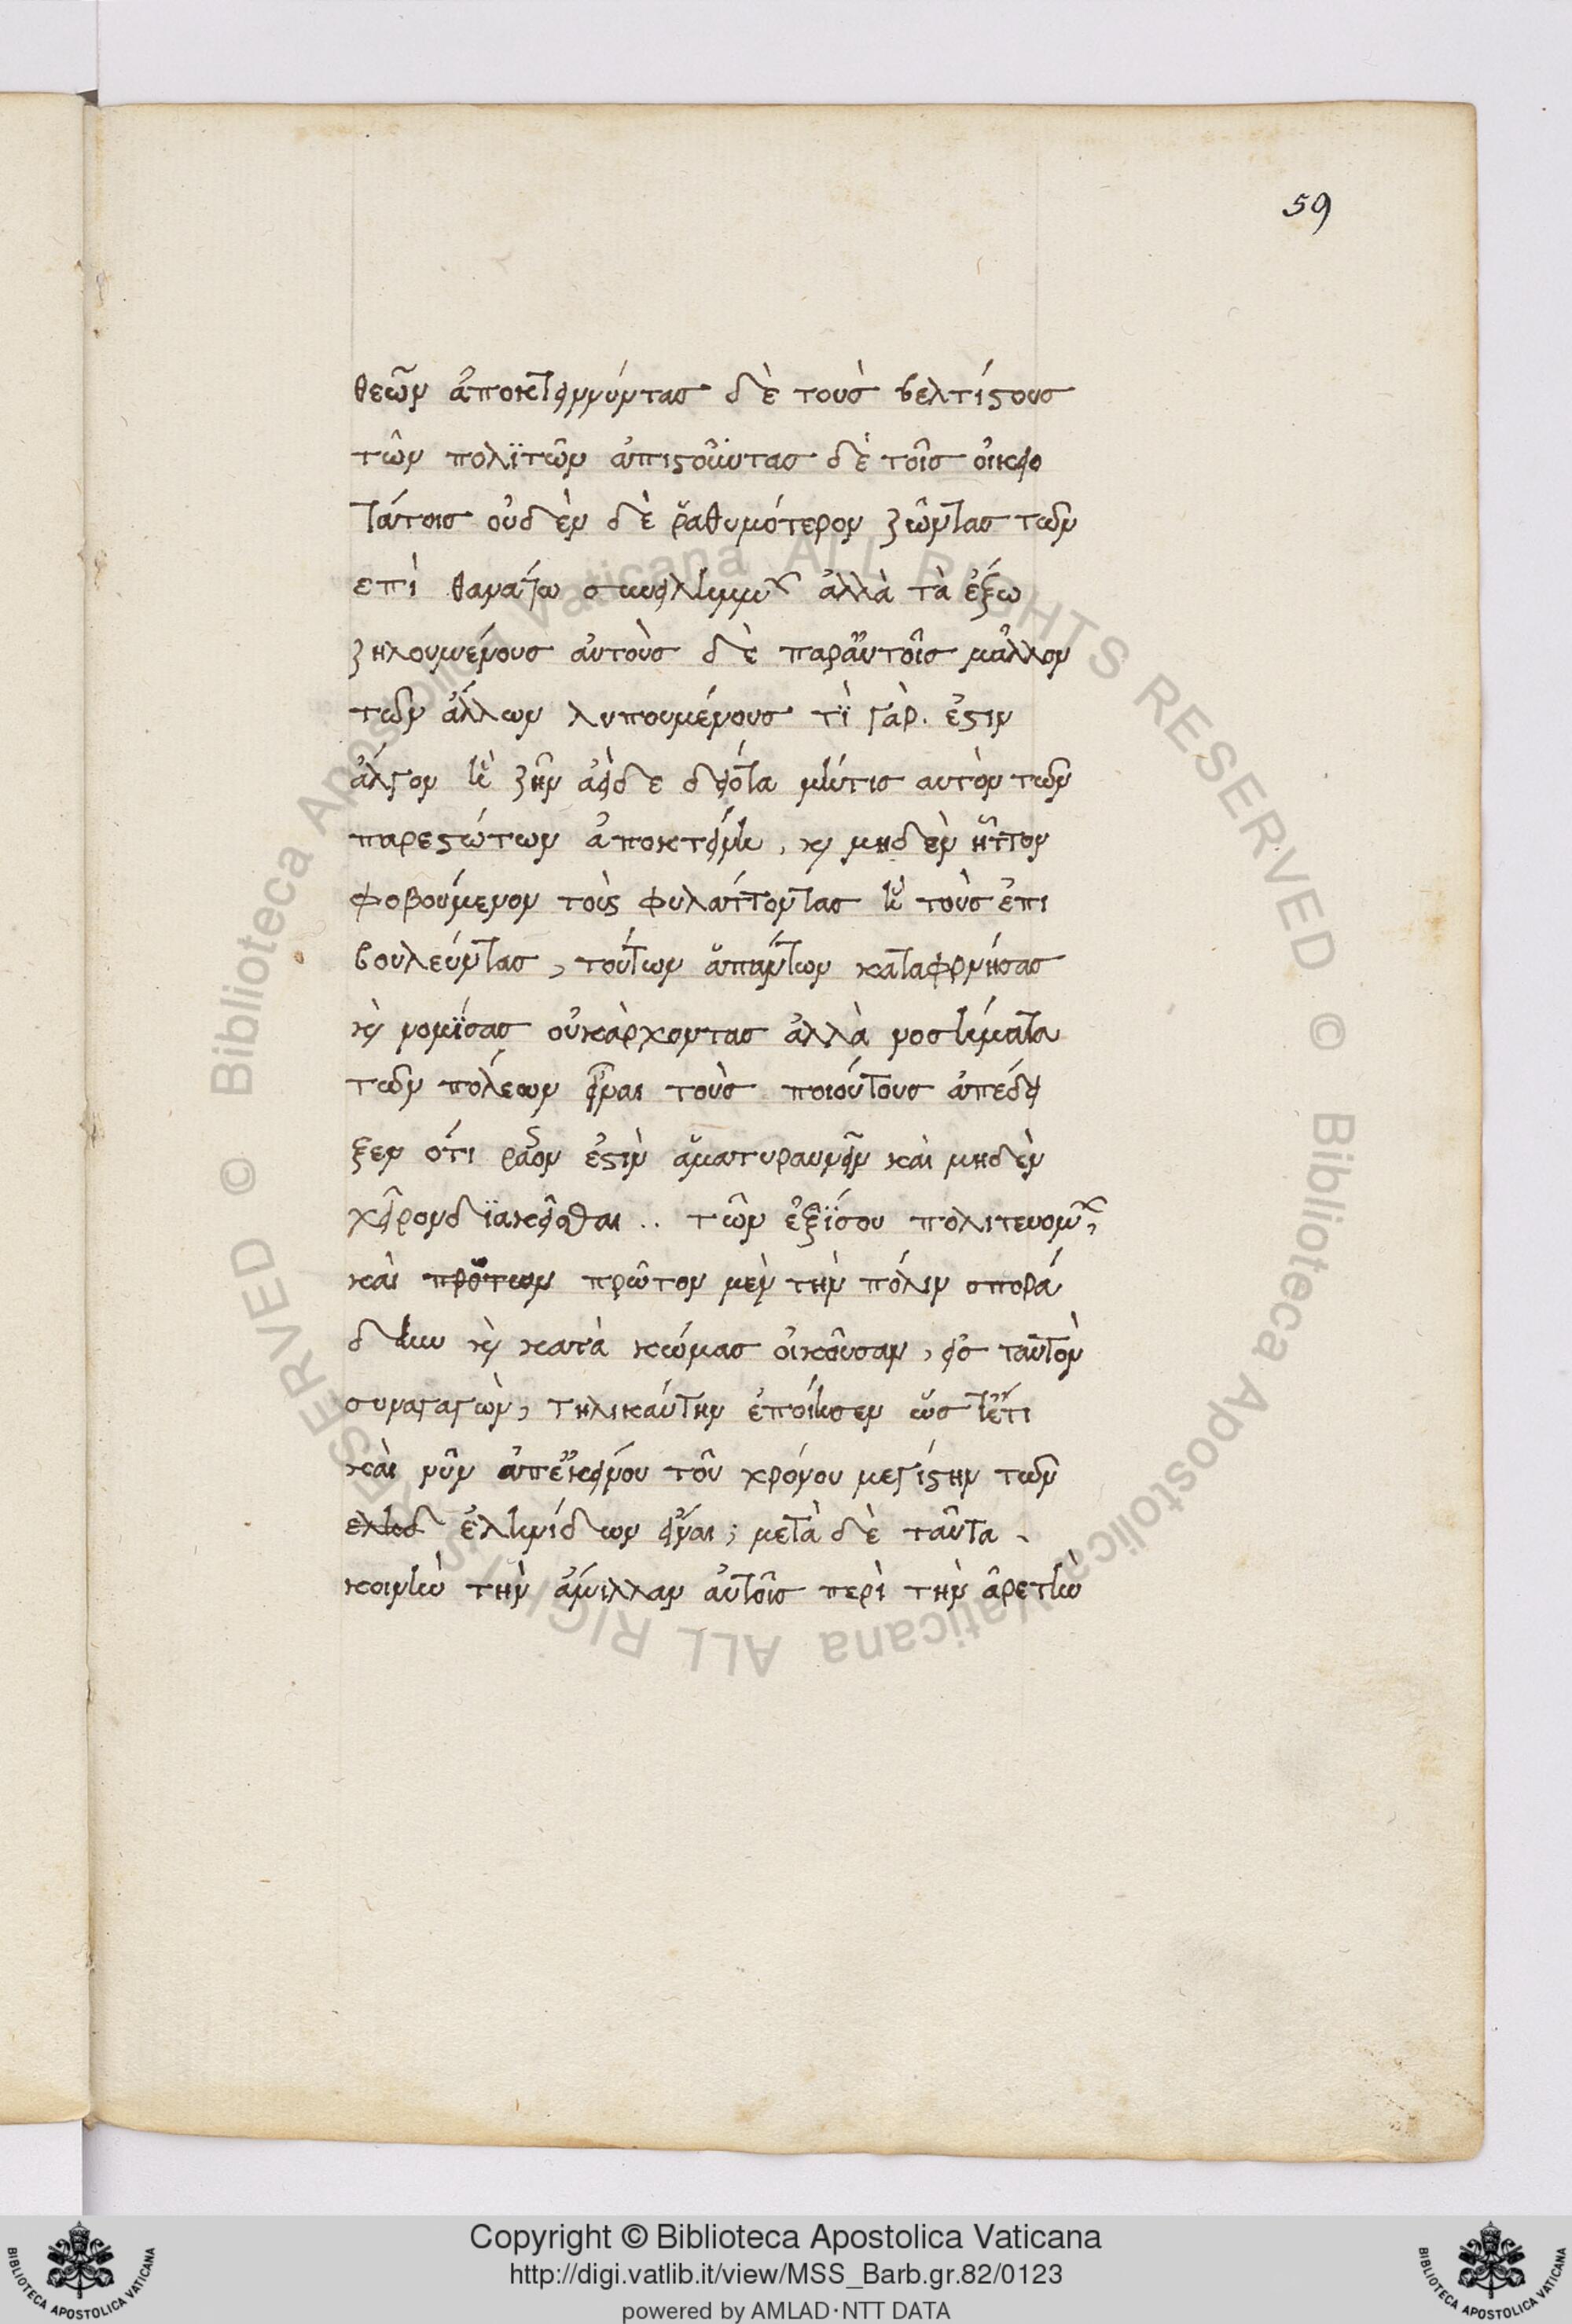 59
θεῶν ἀποκτεινύντας δὲ τοὺς βελτίστους
τῶν πολϊτῶν ἀπιστοῦντας δὲ τοῖς οἰκειο
τάτοις οὐδὲν δὲ ῥαθυμότερον ζῶντας των
επὶ θανάτω συνειλημμέν ἀλλὰ τὰ ἔξω
ζηλουμένους αὐτοὺς δὲ παραὐτοῖς μᾶλλον
των ἄλλων λυπουμένους τϊ γὰρ. ἐστιν
ἄλγιον ἢ ζῆν ἀεὶδε δειότα μήτις αυτὸν των
παρεστώτων ἀποκτείνη, κὶ μηδὲν ἧττον
φοβούμενον τοὺς φυλάττοντας ἢ τοὺς ἐπι
βουλεύντας, τούτων ἁπάντων καταφρονήσας
κὶ νομϊσας οὐκἀρχοντας ἀλλὰ νοσήματα
των πόλεων εἶναι τοὺς ποιούτους ἀπέδει
ξεν ὅτι ρᾶόν ἐστὶν ἅματυραννεῖν καὶ μηδὲν
χεῖρονδϊακεῖσθαι .. τῶν ἐξϊσου πολιτευομένων,
καὶ πρότων πρῶτον μὲν τὴν πόλιν σπορά
δην κὶ κατὰ κώμας οἰκοῦσαν, εἰς ταὐτὸν
συναγαγὼν, τηλικαύτην ἐποίησεν ὥστἔτι
καὶ νῦν ἀπἐκείνου τοῦ χρόνου μεγίστην των
εληδ ἑληνίδων εἶναι; μετὰ δὲ ταῦτα
κοινὴν τὴν ἅμιλλαν αὐτοῖς περὶ τὴν ἀρετὴν
Copyright © Biblioteca Apostolica Vaticana
http://digi.vatlib.it/view/MSS_Barb.gr.82/0123
powered by AMLAD·NTT DATA